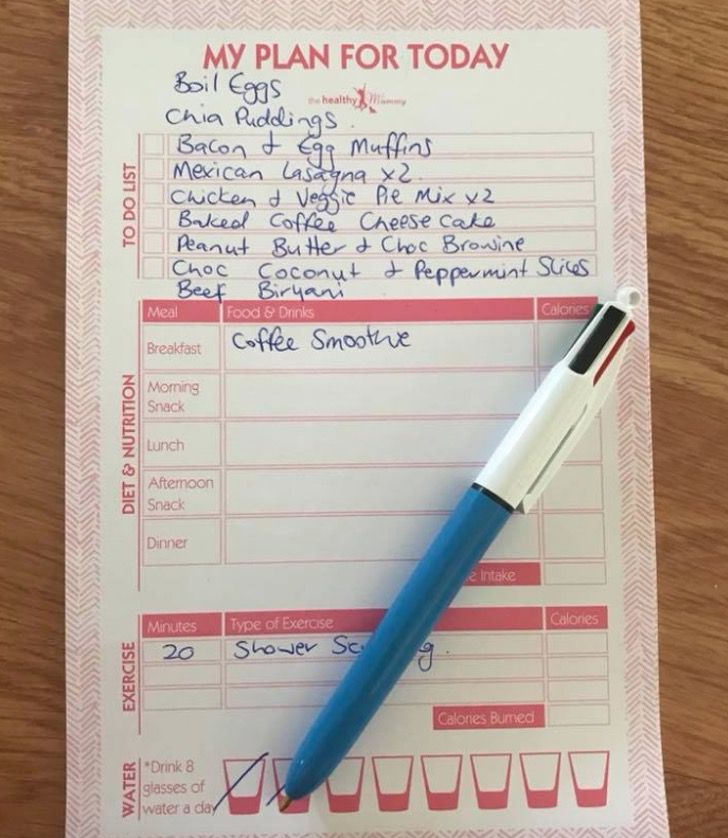 MY PLAN FOR TODAY
Boil Eggs
the healthy Mummy
Chia Puddings.
TO DO LIST
Bacon & Egg Muffins
Mexican Lasagna x2.
Chicken & Veggie Pie Mix x2
Baked Coffee Cheese Cake
Peanut Butter & Choc Browine
Choc Coconut & Peppermint Slices
Beef Biryani
DIET & NUTRITION
Meal Food & Drinks Calories
Breakfast Coffee Smoothie
Morning
Snack
Lunch
Afternoon
Snack
Dinner
Intake
EXERCISE
Minutes Type of Exercise Calories
20 Shower
Calories Burned
WATER
*Drink 8
glasses of
water a day